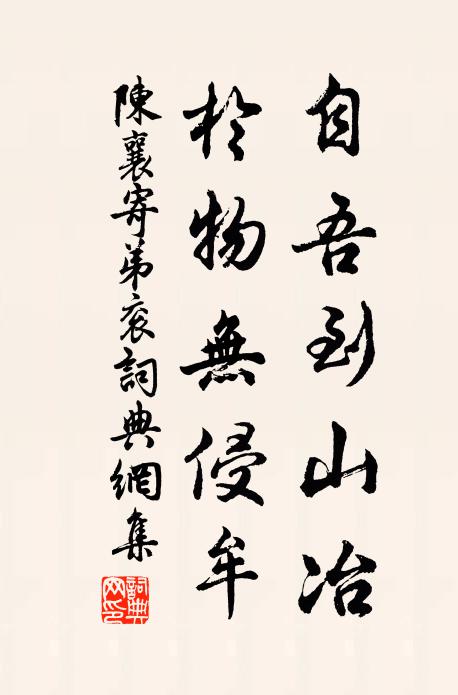 自吾到山冶
於物無侵牟
陳襄寄弟衮詞典網集
詞典網印